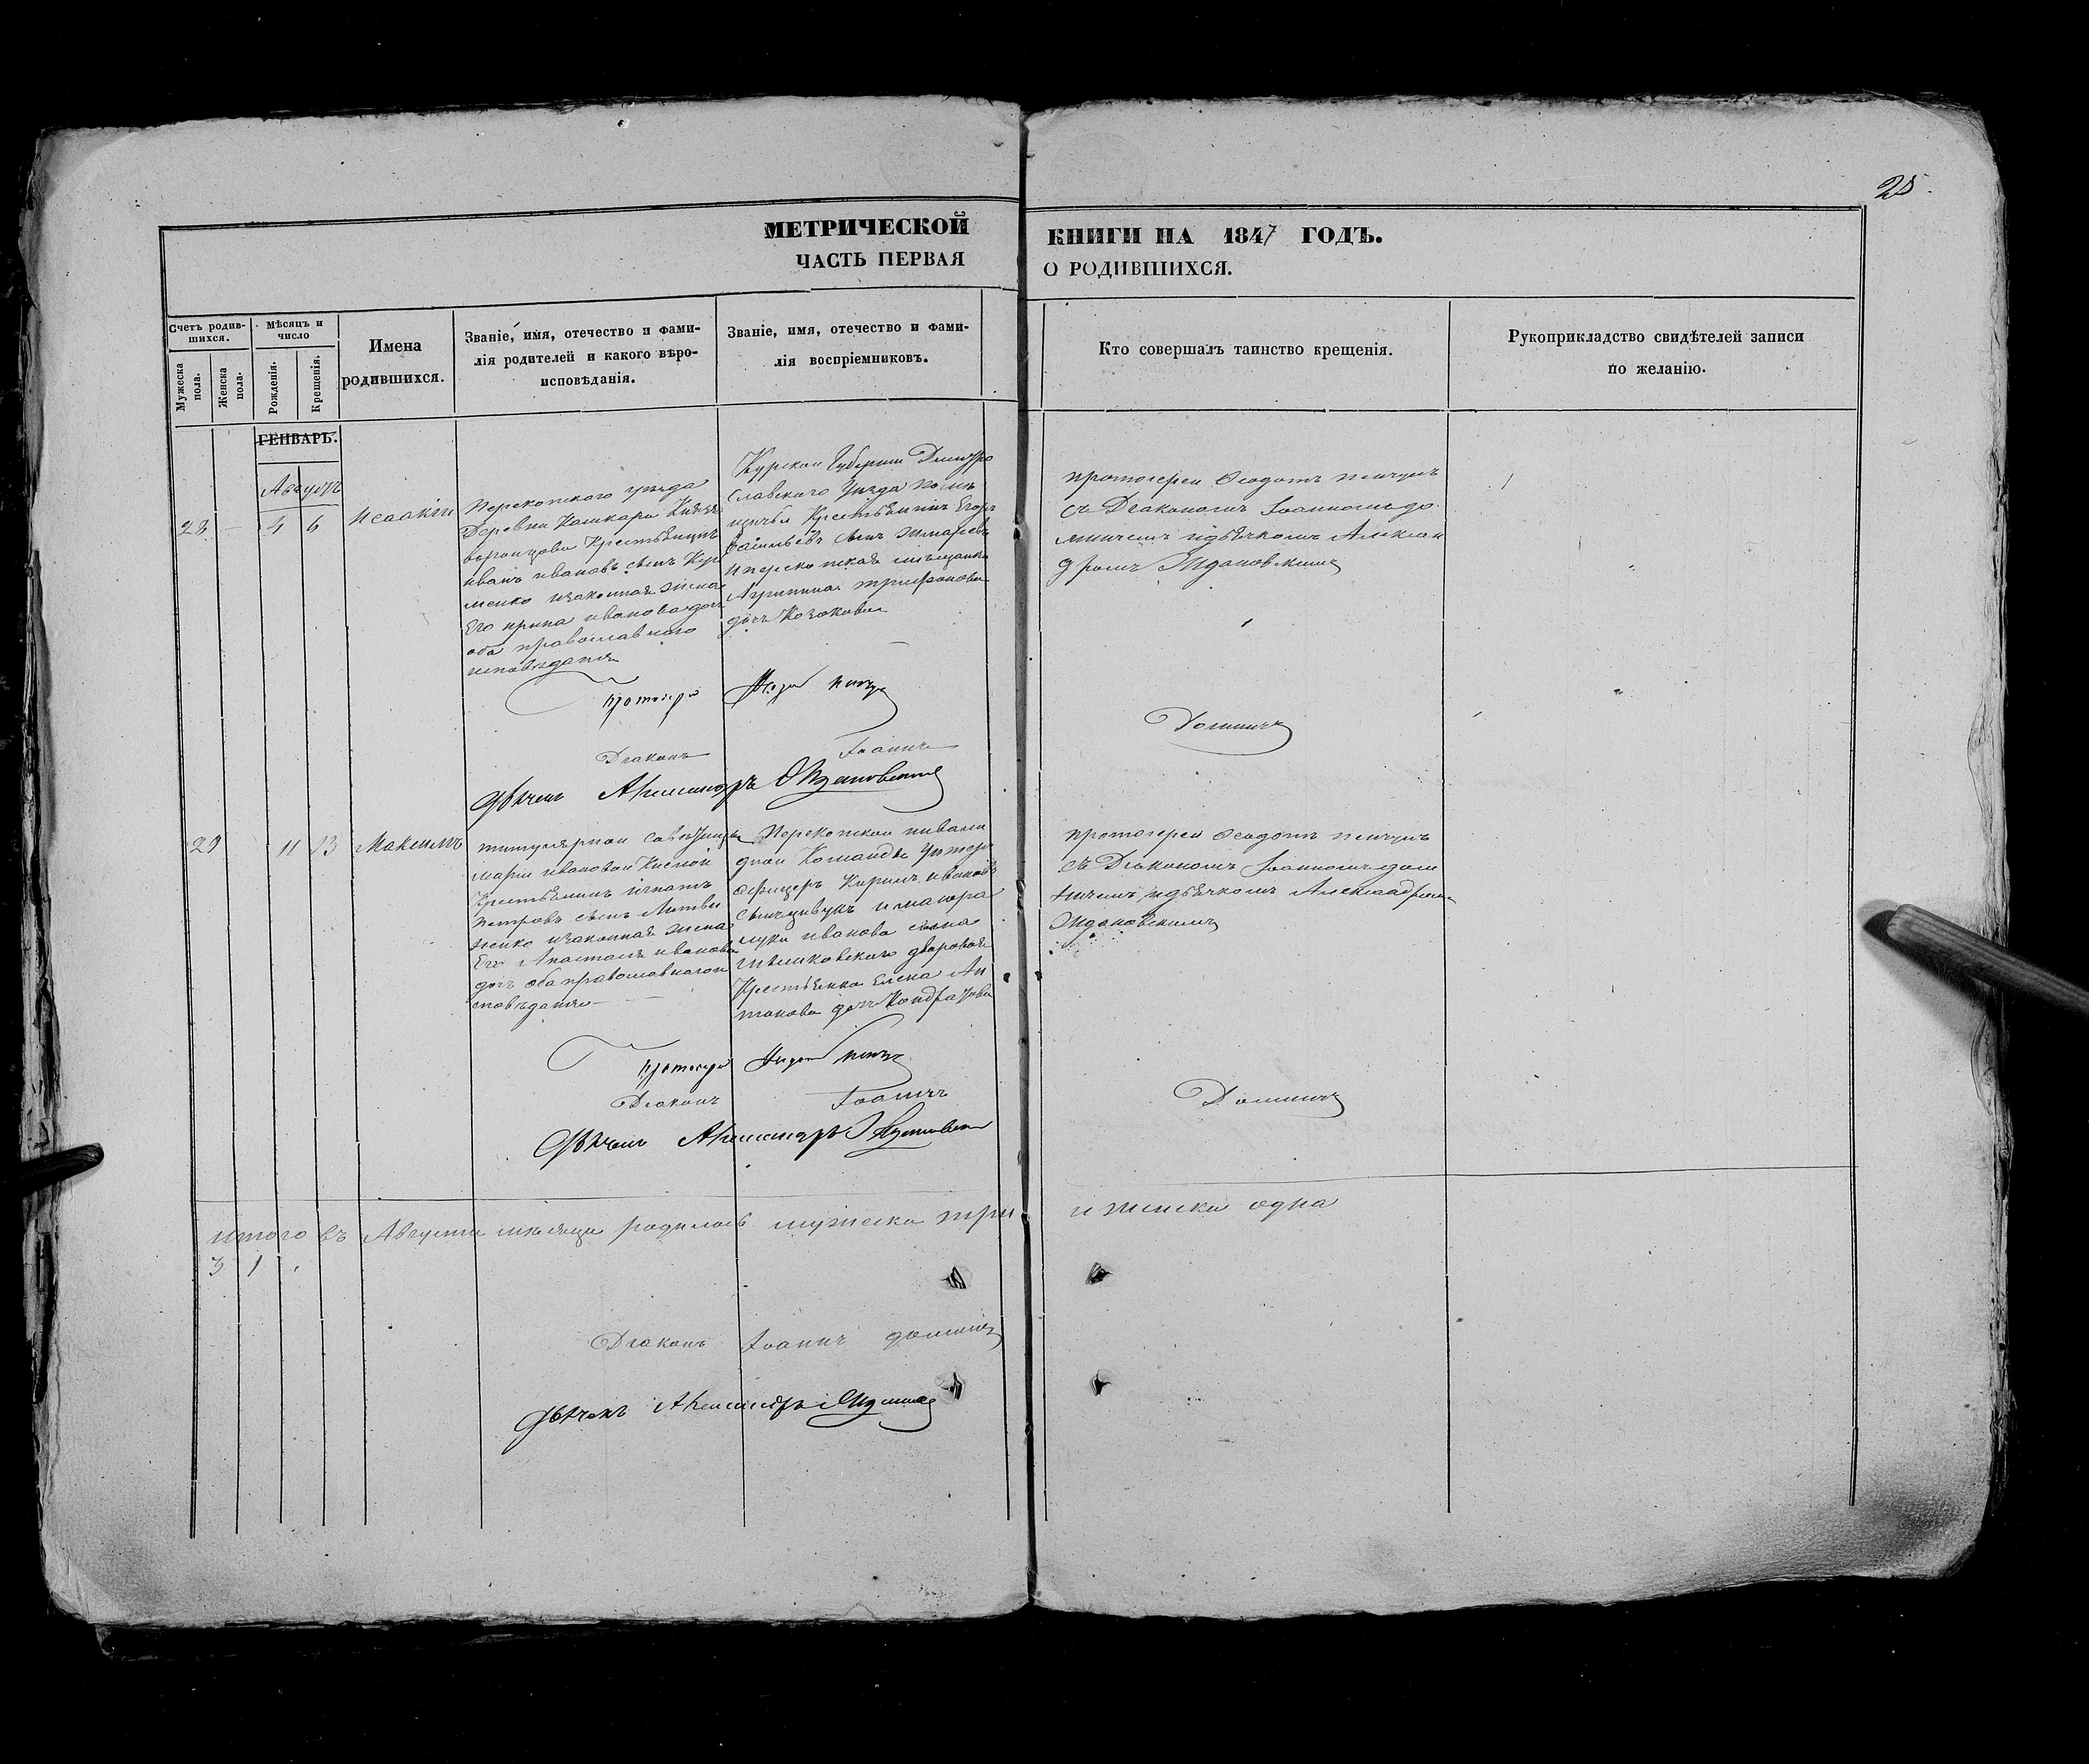 25.
МЕТРИЧЕСКОЙ КНИГИ НА 1847 ГОДЪ.
ЧАСТЬ ПЕРВАЯ О РОДИВШИХСЯ.
Счетъ родив-
шихся.
Мужеска
пола.
Женска
пола.
Мѣсяцъ и
число
Рожденія.
Крещенія.
Имена
родившихся.
Званіе, имя, отечество и фами-
лія родителей и какого вѣро-
исповѣданія.
Званіе, имя, отечество и фами-
лія воспріемниковъ.
Кто совершалъ таинство крещенія.
Рукоприкладство свидѣтелей записи
по желанію.
ГЕНВАРЬ.
Августъ
28 4 6 Исаакій
Перекопскаго уѣзда
Деревни Кашкары Князя
воронцова Крестьянинъ
иванъ ивановъ сынъ
менко изаконная жена
Его ирина иванова доч
оба православнаго
исповѣданія
Курской Губерніи
славскаго Уѣзда
Крестьянинъ Егоръ
сынъ
иперекопская мѣщанка
Агрипина трифонова
дочь Козакова
протоіерей Ѳеодотъ
съ Діакономъ Іоанномъ до
миничемъ идьячкомъ Алексан
дромъ Ждановскимъ
Протоіерей
Діаконъ Іоаннъ Доминичъ
Дьячекъ Александръ Ждановскій
29 11 13 Максимъ
титулярной совѣтницы
маріи ивановой
Крестьянинъ игнатъ
петровъ сынъ Литви
ненко изаконная жена
Его Анастасія иванова
доч оба православнаго и
сповѣданія
Перекопской инвали
дной Команды Унтеръ
офицеръ Кирилъ ивановъ
сынъ имаіора
луки иванова сына
дворовая
Крестьянка Елена Ан
тонова доч Кондратова
протоіерей Ѳеодотъ
съ Діакономъ Іоанномъ дом
иничемъ идьячкомъ Александромъ
Ждановскимъ
Протоіерей
Діаконъ Іоаннъ Доминичъ
Дьячекъ Александръ Ждановскій
итого въ Августѣ мѣсяцѣ родилось мужеска три и женска одна
3 1
Діаконъ Іоаннъ доминичъ
Дьячекъ Александръ